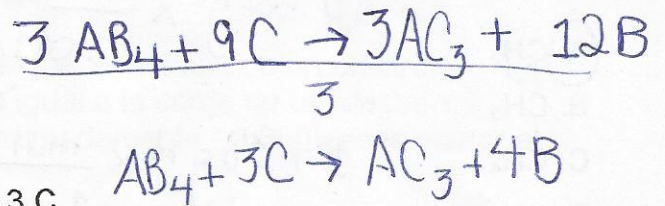 3 AB₄ + 9C → 3AC₃ + 12B
3
AB₄ + 3C → AC₃ + 4B
3 C